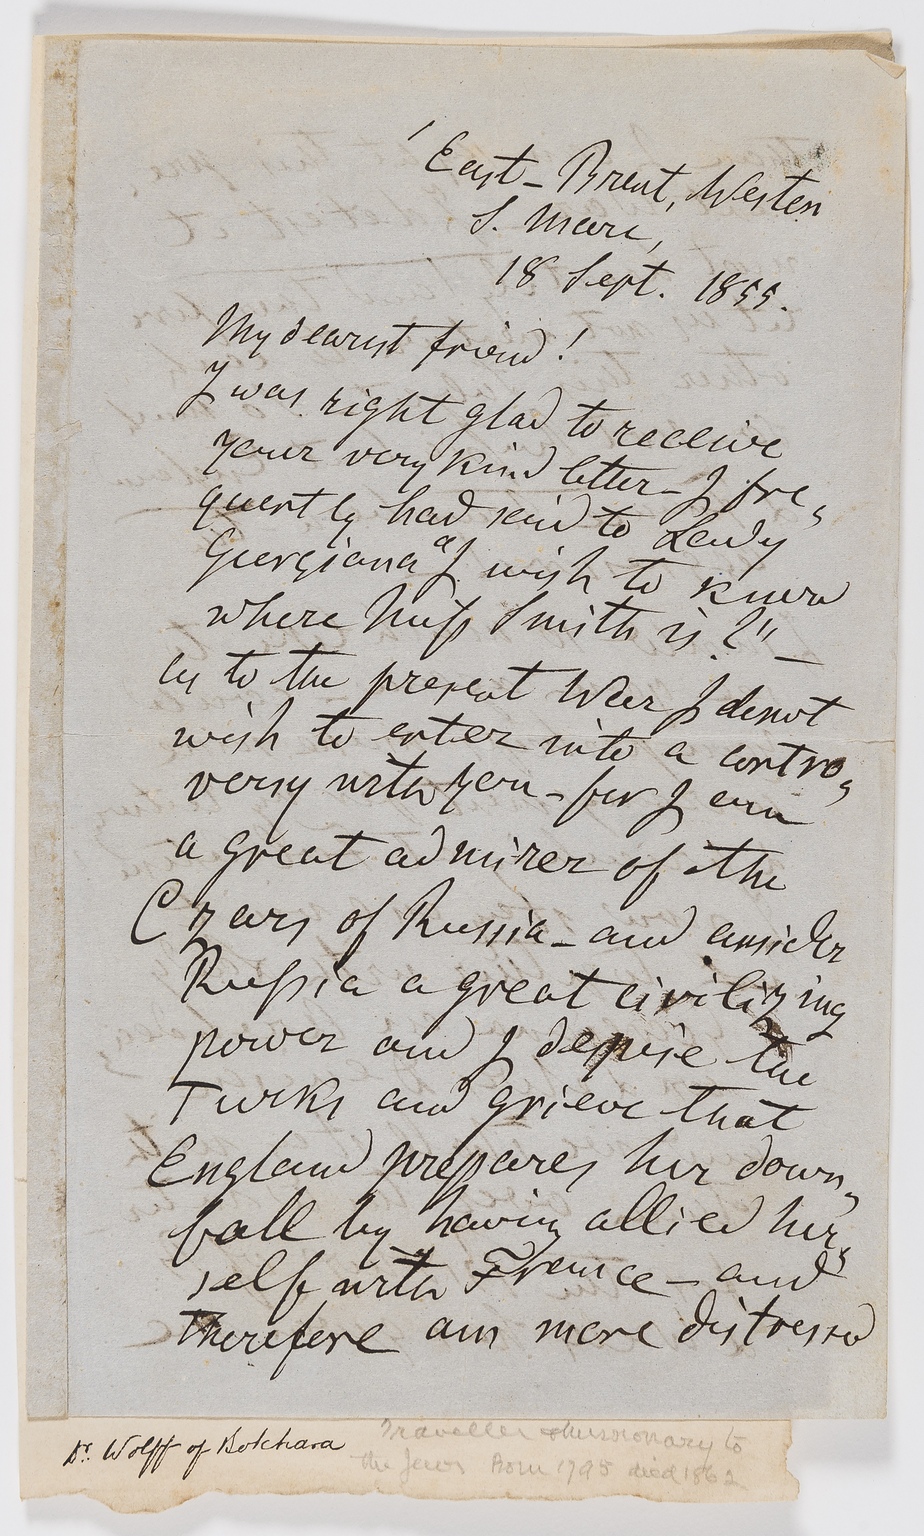 East-Brent, Weston
S. Mare,
18 Sept. 1855.
My dearest friend!
I was right glad to receive
your very kind letter - I fre„
quently had said to Lady
Georgiana "I wish to know
where Miss Smith is?" -
as to the present War I do not
wish to enter into a contro„
versy with you - for I am
a great admirer of the
Czars of Russia - and consider
Russia a great civilizing
power and I despise the
Turks and grieve that
England prepares her down„
fall by having allied her„
self with France - and
therefore am more distressed
Dr. Wolff of Bokhara
Traveller & missionary to
the Jews Born 1795 died 1862